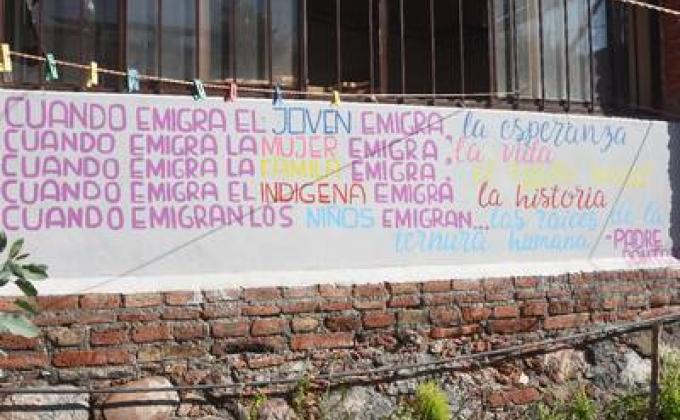 CUANDO EMIGRA EL JOVEN EMIGRA, la esperanza
CUANDO EMIGRA LA MUJER EMIGRA, la vida
CUANDO EMIGRA LA FAMILIA EMIGRA,
CUANDO EMIGRA EL INDIGENA EMIGRA la historia
CUANDO EMIGRAN LOS NIÑOS EMIGRAN... las raices de la
ternura humana. -PADRE